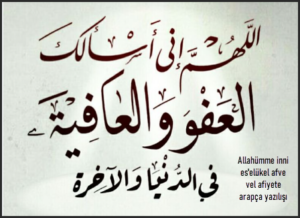 اللَّهُمَّ إِنِّي أَسْأَلُكَ
العَفْوَ وَالعَافِيَةَ
فِي الدُّنْيَا وَالآخِرَة
Allahümme inni
es'elükel afve
vel afiyete
arapça yazılışı